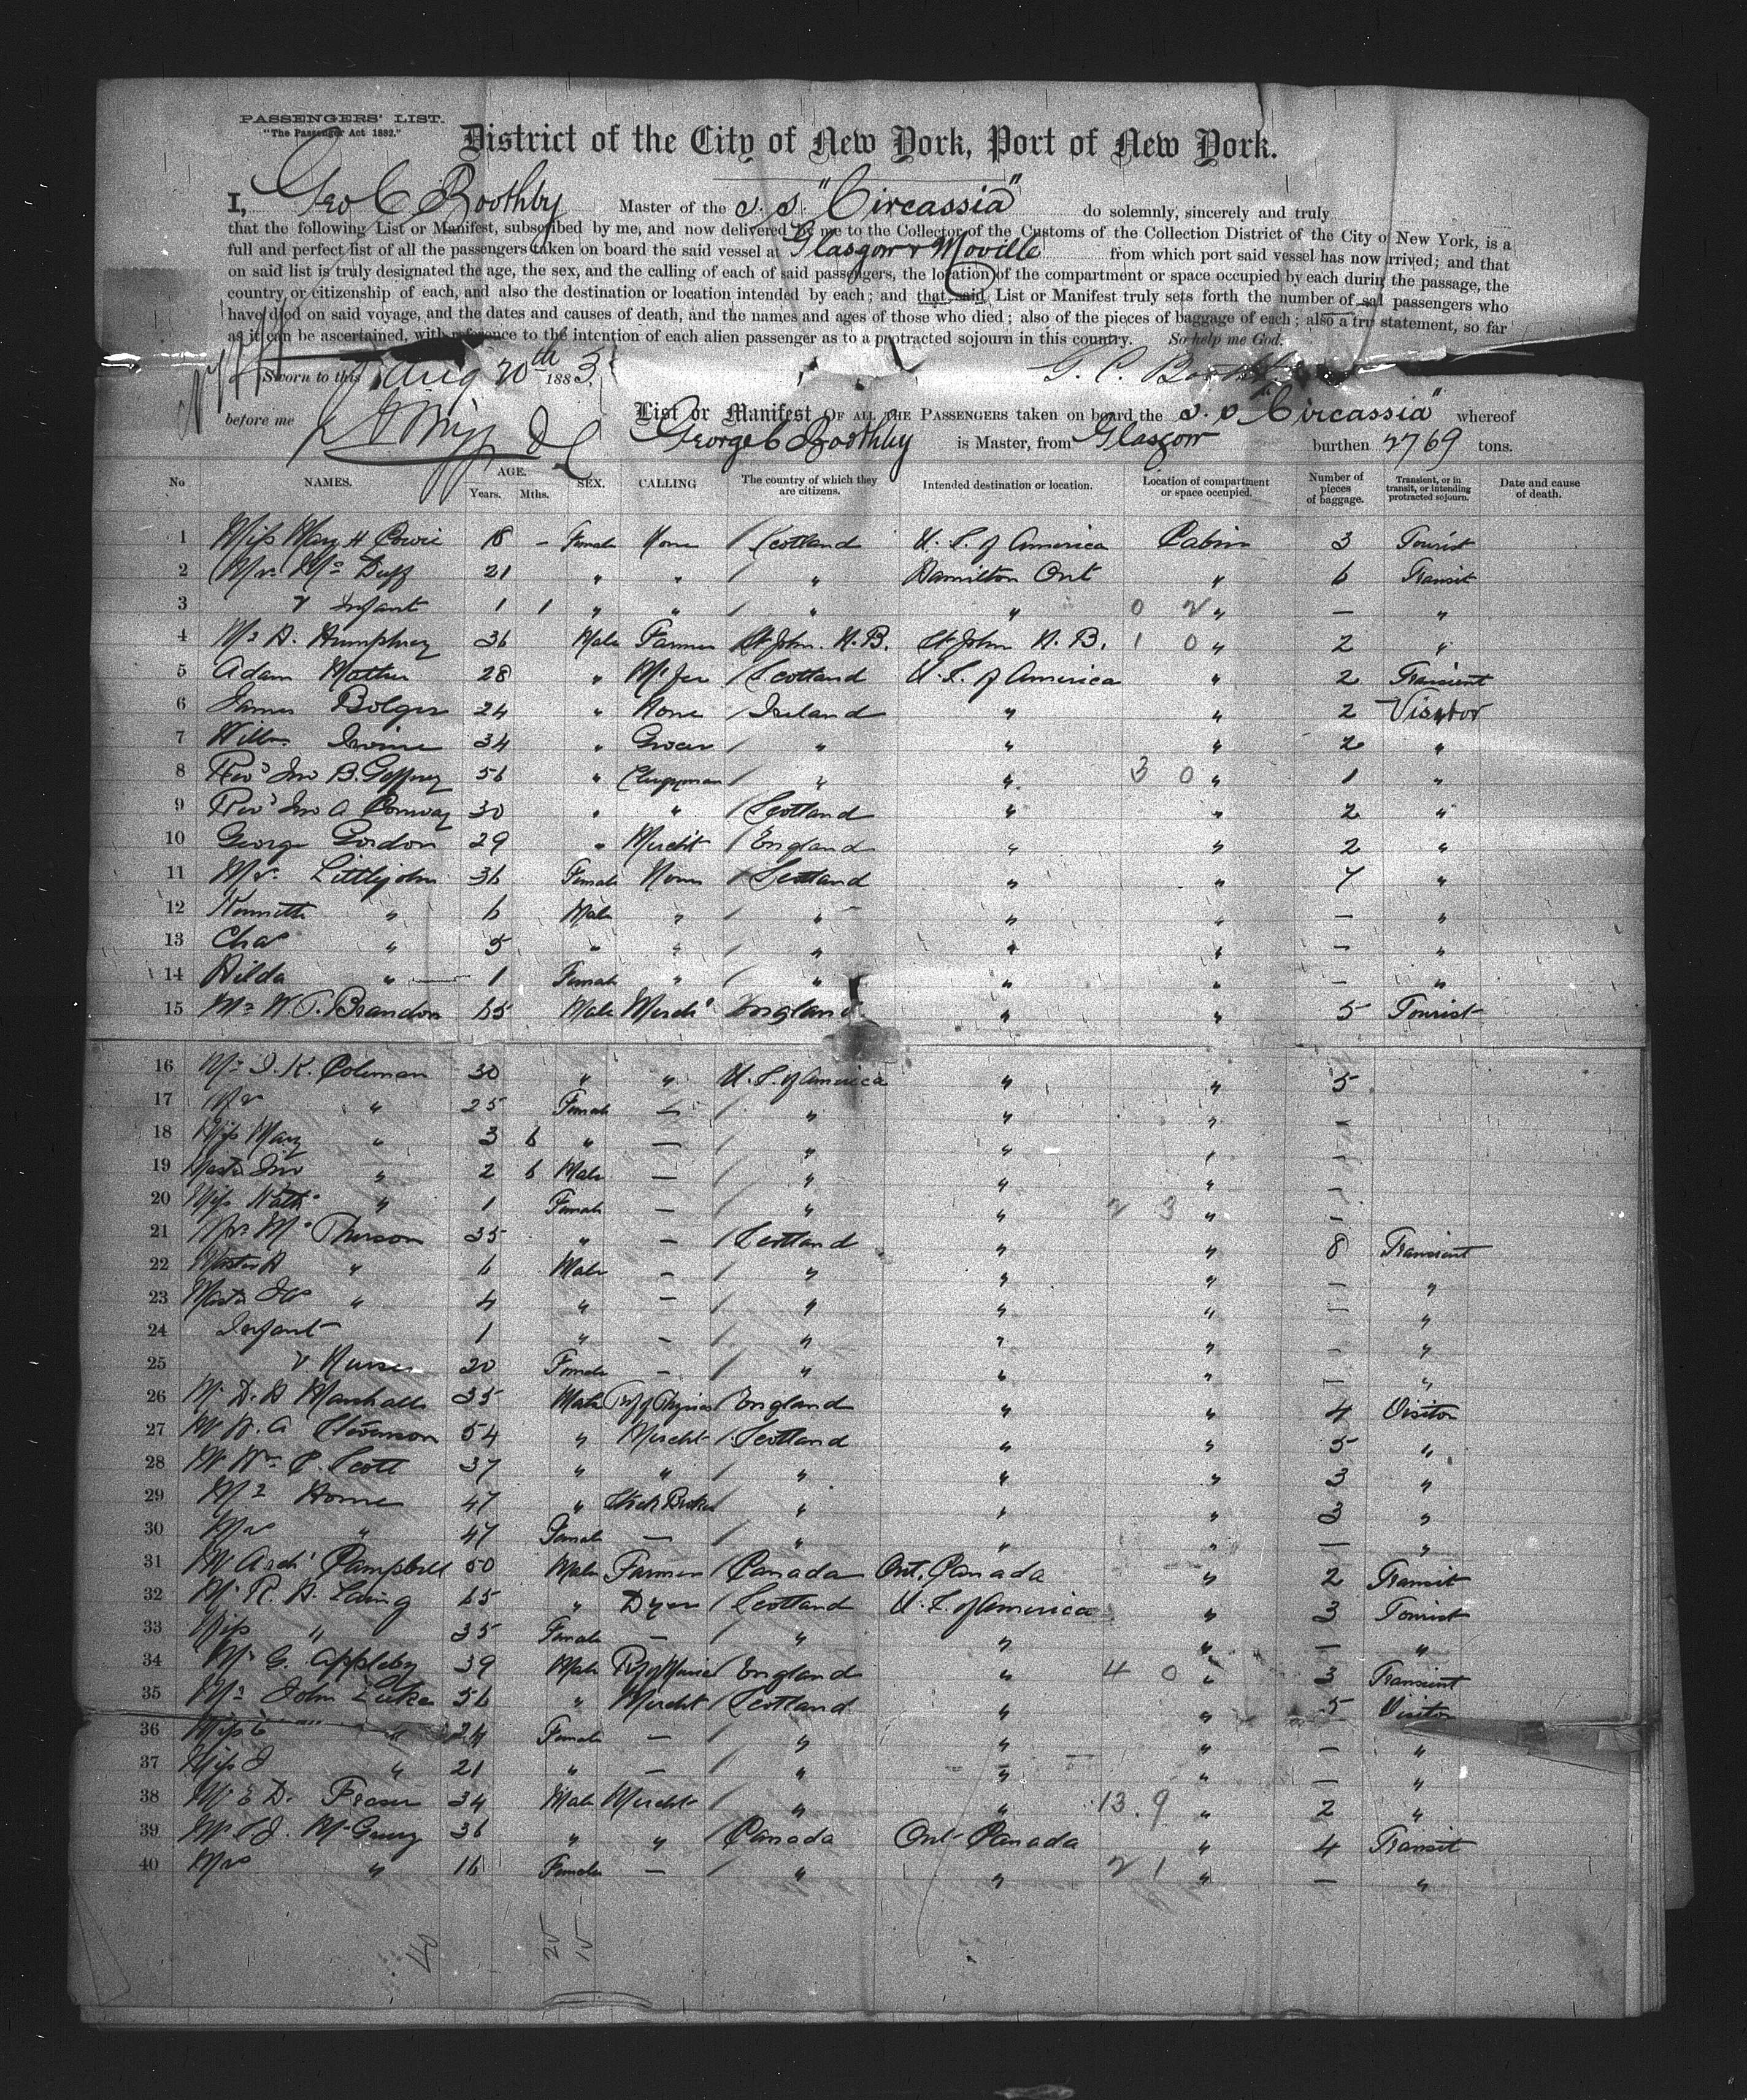 PASSENGERS' LIST.
"The Passenger Act 1882."
District of the City of New York, Port of New York.
I, Geo C Boothby Master of the S. S. "Circassia" do solemnly, sincerely and truly
that the following List or Manifest, subscribed by me, and now delivered by me to the Collector of the Customs of the Collection District of the City of New York, is a
full and perfect list of all the passengers taken on board the said vessel at Glasgow & Moville from which port said vessel has now arrived; and that
on said list is truly designated the age, the sex, and the calling of each of said passengers, the location of the compartment or space occupied by each during the passage, the
country or citizenship of each, and also the destination or location intended by each; and that said List or Manifest truly sets forth the number of said passengers who
have died on said voyage, and the dates and causes of death, and the names and ages of those who died; also of the pieces of baggage of each; also a true statement, so far
as it can be ascertained, with reference to the intention of each alien passenger as to a protracted sojourn in this country. So help me God.
Sworn to this Aug 20th 1883 G. C. Boothby
before me
List or Manifest OF ALL THE PASSENGERS taken on board the S. S. "Circassia" whereof
George C Boothby is Master, from Glasgow burthen 2769 tons.
No NAMES. AGE. Years. Mths. SEX. CALLING The country of which they are citizens. Intended destination or location. Location of compartment or space occupied. Number of pieces of baggage. Transient, or in transit, or intending protracted sojourn. Date and cause of death.
1 Miss Mary H Cowie 18 - Female None Scotland U. S. of America Cabin 3 Tourist
2 Mrs McDuff 21 " " " Hamilton Ont " 6 Transit
3 & Infant 1 1 " " " " 0 2 " — "
4 Mr A. Humphrey 36 Male Farmer St John. N.B. St John N.B. 1 0 " 2 "
5 Adam Mather 28 " Scotland U. S. of America " 2 Transient
6 James Bolger 24 " None Ireland " " 2 Visitor
7 Willm. Irvine 34 " Grocer " " " 2 "
8 Revd Jno B. 56 " Clergyman " " 3 0 " 1 "
9 Revd Jno A Conway 30 " " Scotland " " 2 "
10 George Gordon 29 " Mercht England " " 2 "
11 Mrs. Littlejohn 36 Female None Scotland " " 7 "
12 Kenneth " 6 Male " " " " — "
13 Chas " 5 " " " " " — "
14 Hilda " 1 Female " " " " — "
15 Mr W. T. Brandon 65 Male Mercht England " " 5 Tourist
16 Mr J. K. Coleman 30 " " U. S. of America " " 5
17 Mrs " 25 Female — " " " —
18 Miss Mary " 3 6 " — " " " —
19 Master Jno " 2 6 Male — " " " —
20 Miss " 1 Female — " " 2 3 " —
21 Mrs McPherson 35 " — Scotland " " 8 Transient
22 Master A " 6 Male — " " " — "
23 Master " 4 " — " " " — "
24 Infant 1 " — " " " — "
25 & Nurse 20 Female — " " " — "
26 Mr D. H Marshall 35 Male Prof of Physics England " " 4 Visitor
27 Mr N. A Stevenson 54 " Mercht Scotland " " 5 "
28 Mr Wm C. Scott 37 " " " " " 3 "
29 Mr Horne 47 " Stock Broker " " " 3 "
30 Mrs " 47 Female — " " " — "
31 Mr Archd Campbell 50 Male Farmer Canada Ont. Canada " 2 Transit
32 Mr R. H. Laing 65 " Dyer Scotland U. S. of America " 3 Tourist
33 Miss " 35 Female — " " " — "
34 Mr G. Appleby 39 Male Prof of Music England " 4 0 " 3 Transient
35 Mr John Luke 56 " Mercht Scotland " " 5 Visitor
36 Miss " 24 Female — " " " — "
37 Miss J " 21 " — " " " — "
38 Mr E D. Fraser 34 Male Mercht " " 13.9 " 2 "
39 Mr 36 " " Canada Ont Canada " 4 Transit
40 Mrs " 16 Female — " " 2 1 " — "
40 25 15